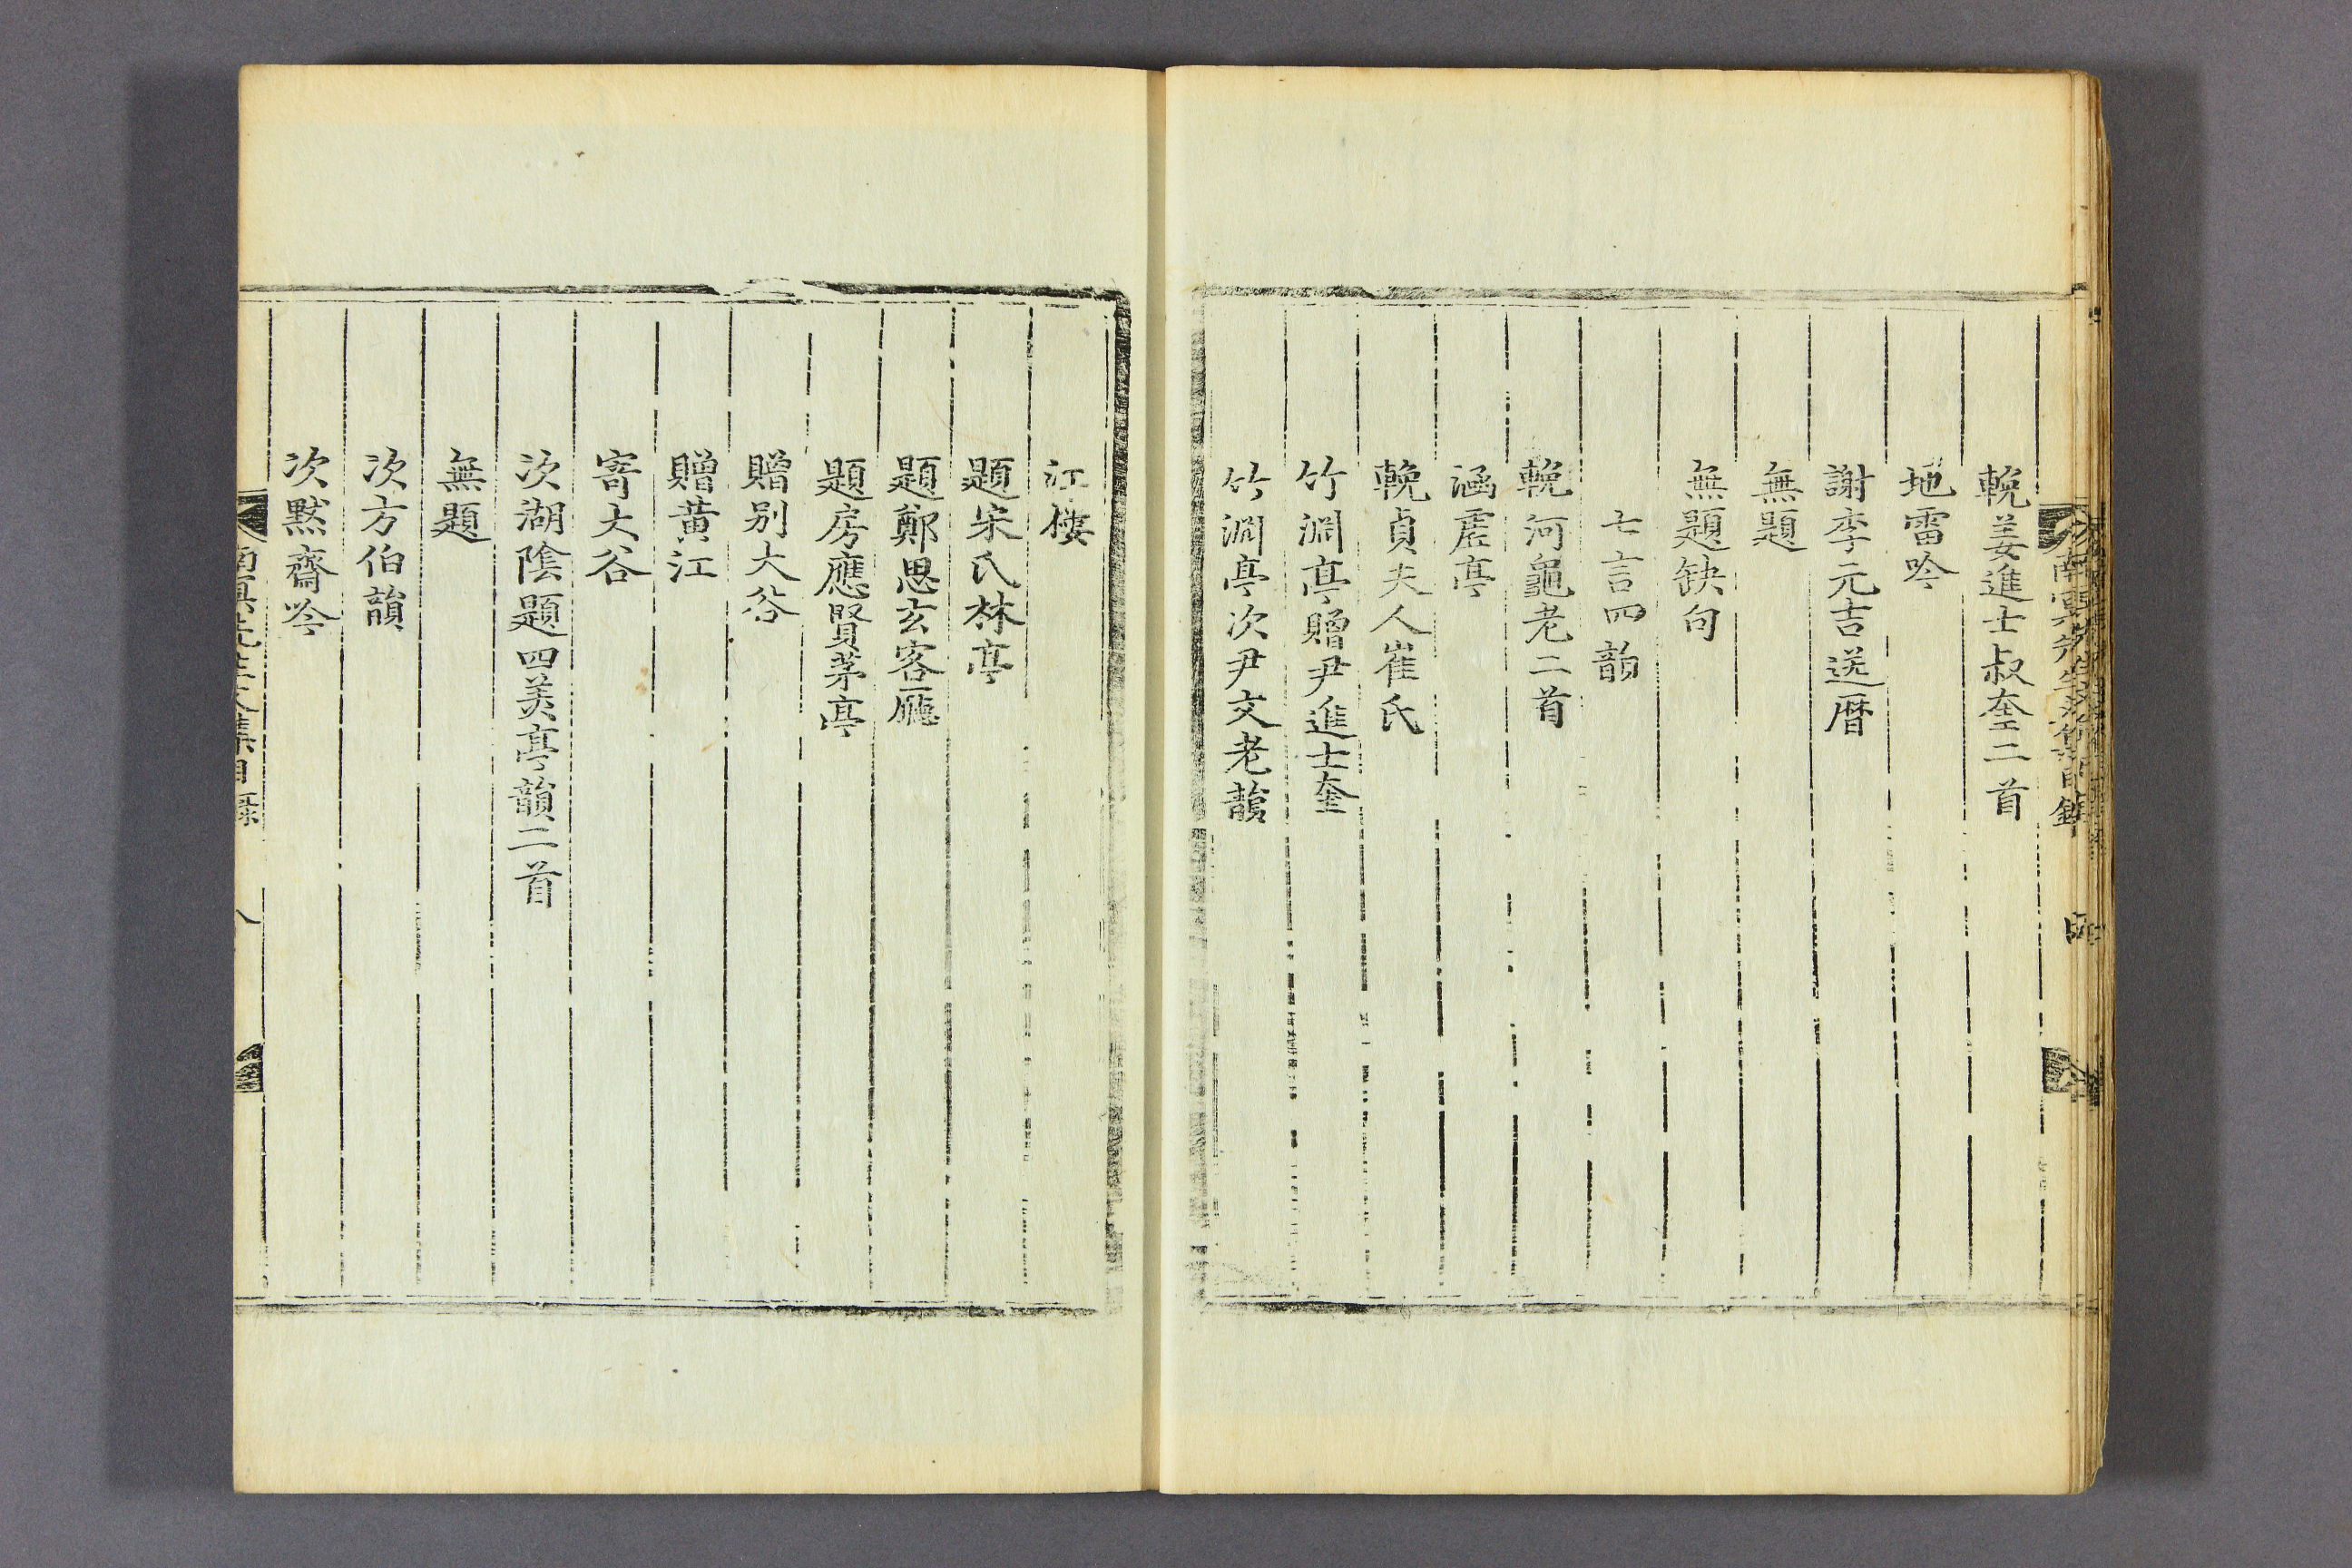 輓姜進士叔奎二首
地雷吟
謝李元吉送暦
無題
無題缺句
七言四韻
輓河龜老二首
涵虛亭
輓貞夫人崔氏
竹淵亭贈尹進士奎
竹淵亭次尹文老韻
江樓
題宋氏林亭
題鄭思玄客廳
題房應賢茅亭
贈别大谷
贈黃江
寄大谷
次湖陰題四美亭韻二首
無題
次方伯韻
次黙齋吟
南冥先生文集目錄
八